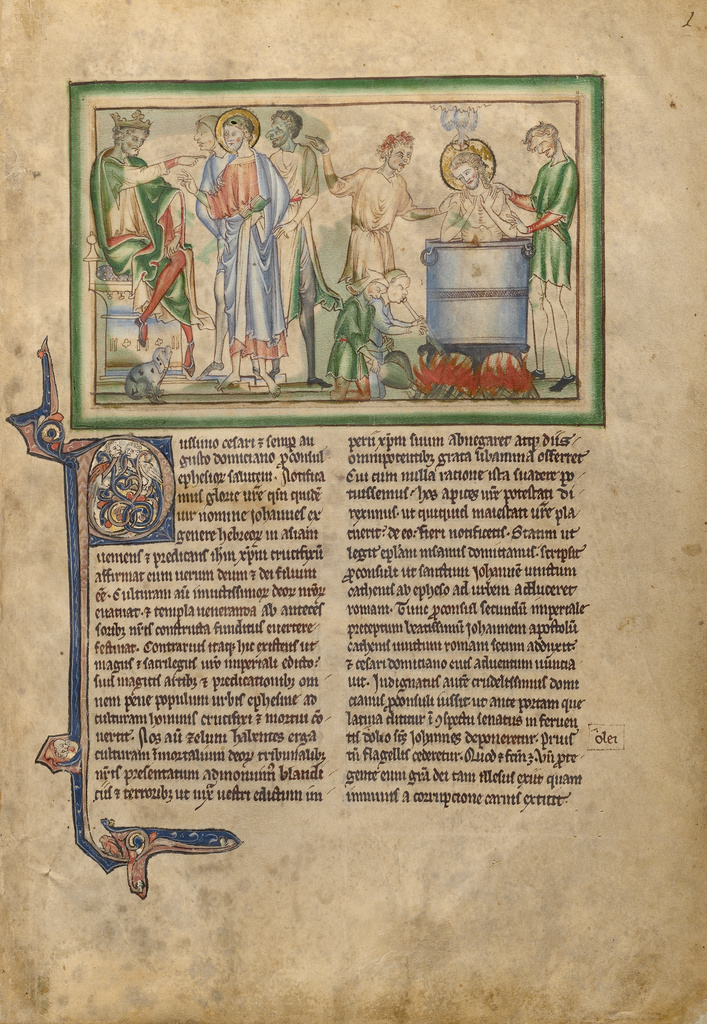 1
ussimo cesari ⁊ semp au
gusto domiciano ꝓconsul
ephesioꝝ salutem. Notifica
mus glorie vr̄e qm̄ quidē
uir nomine iohannes ex
genere hebreoꝝ in asiam
ueniens ⁊ predicans ih̄m xp̄m crucifixū
affirmat eum uerum deum ⁊ dei filium
ēē. Culturam aū inuictissimoꝝ deoꝝ nr̄oꝝ
euacuat. ⁊ templa ueneranda ab anteces
soribꝫ nr̄is constructa funditus euertere
festinat. Contrarius itaqꝫ hic existens ut
magus ⁊ sacrilegus ur̄o imperiali edicto.
suis magicis artibꝫ ⁊ predicationibꝫ om
nem pene populum urbis ephesine ad
culturam hominis crucifixi ⁊ mortui cō
uertit. Nos aū zelum habentes erga
culturam inmortalium deoꝝ tribunalibꝫ
nr̄is presentatum admonuim̄ blandi
ciis ⁊ terroribꝫ ut iuxᵃ uestri edictum im
perii xp̄m suum abnegaret atqꝫ diis
omnipotentibꝫ grata libamina offerret
Cui cum nulla ratione ista suadere po
tuissemus. hos apices vr̄e potestati di
reximus. ut quicquid maiestati vr̄e pla
cuerit. de eo. fieri notificetis. Statim ut
legit ep̄lam insanus domicianus. scripsit
ꝓconsuli ut sanctum iohannē uinctum
cathenis ab epheso ad urbem adduceret
romam. Tunc ꝓconsul secundū imperiale
preceptum beatissimū iohannem apostolū
cathenis uinctum romam secum adduxit
⁊ cesari domiciano eius aduentum nuncia
uit. Indignatus autē crudelissimus domi
cianus ꝓconsuli iussit ut ante portam que
latina dicitur ī ꝯspectu senatus in feruen
tis dolio sc̄s iohannes deponeretur. Prius
olei
tn̄ flagellis cederetur. Quod ⁊ fcm̄ ꝫ. Vn̄ ꝓte
gente eum gr̄a dei tam illesus exiit quam
immunis a corrupcione carnis extitit.